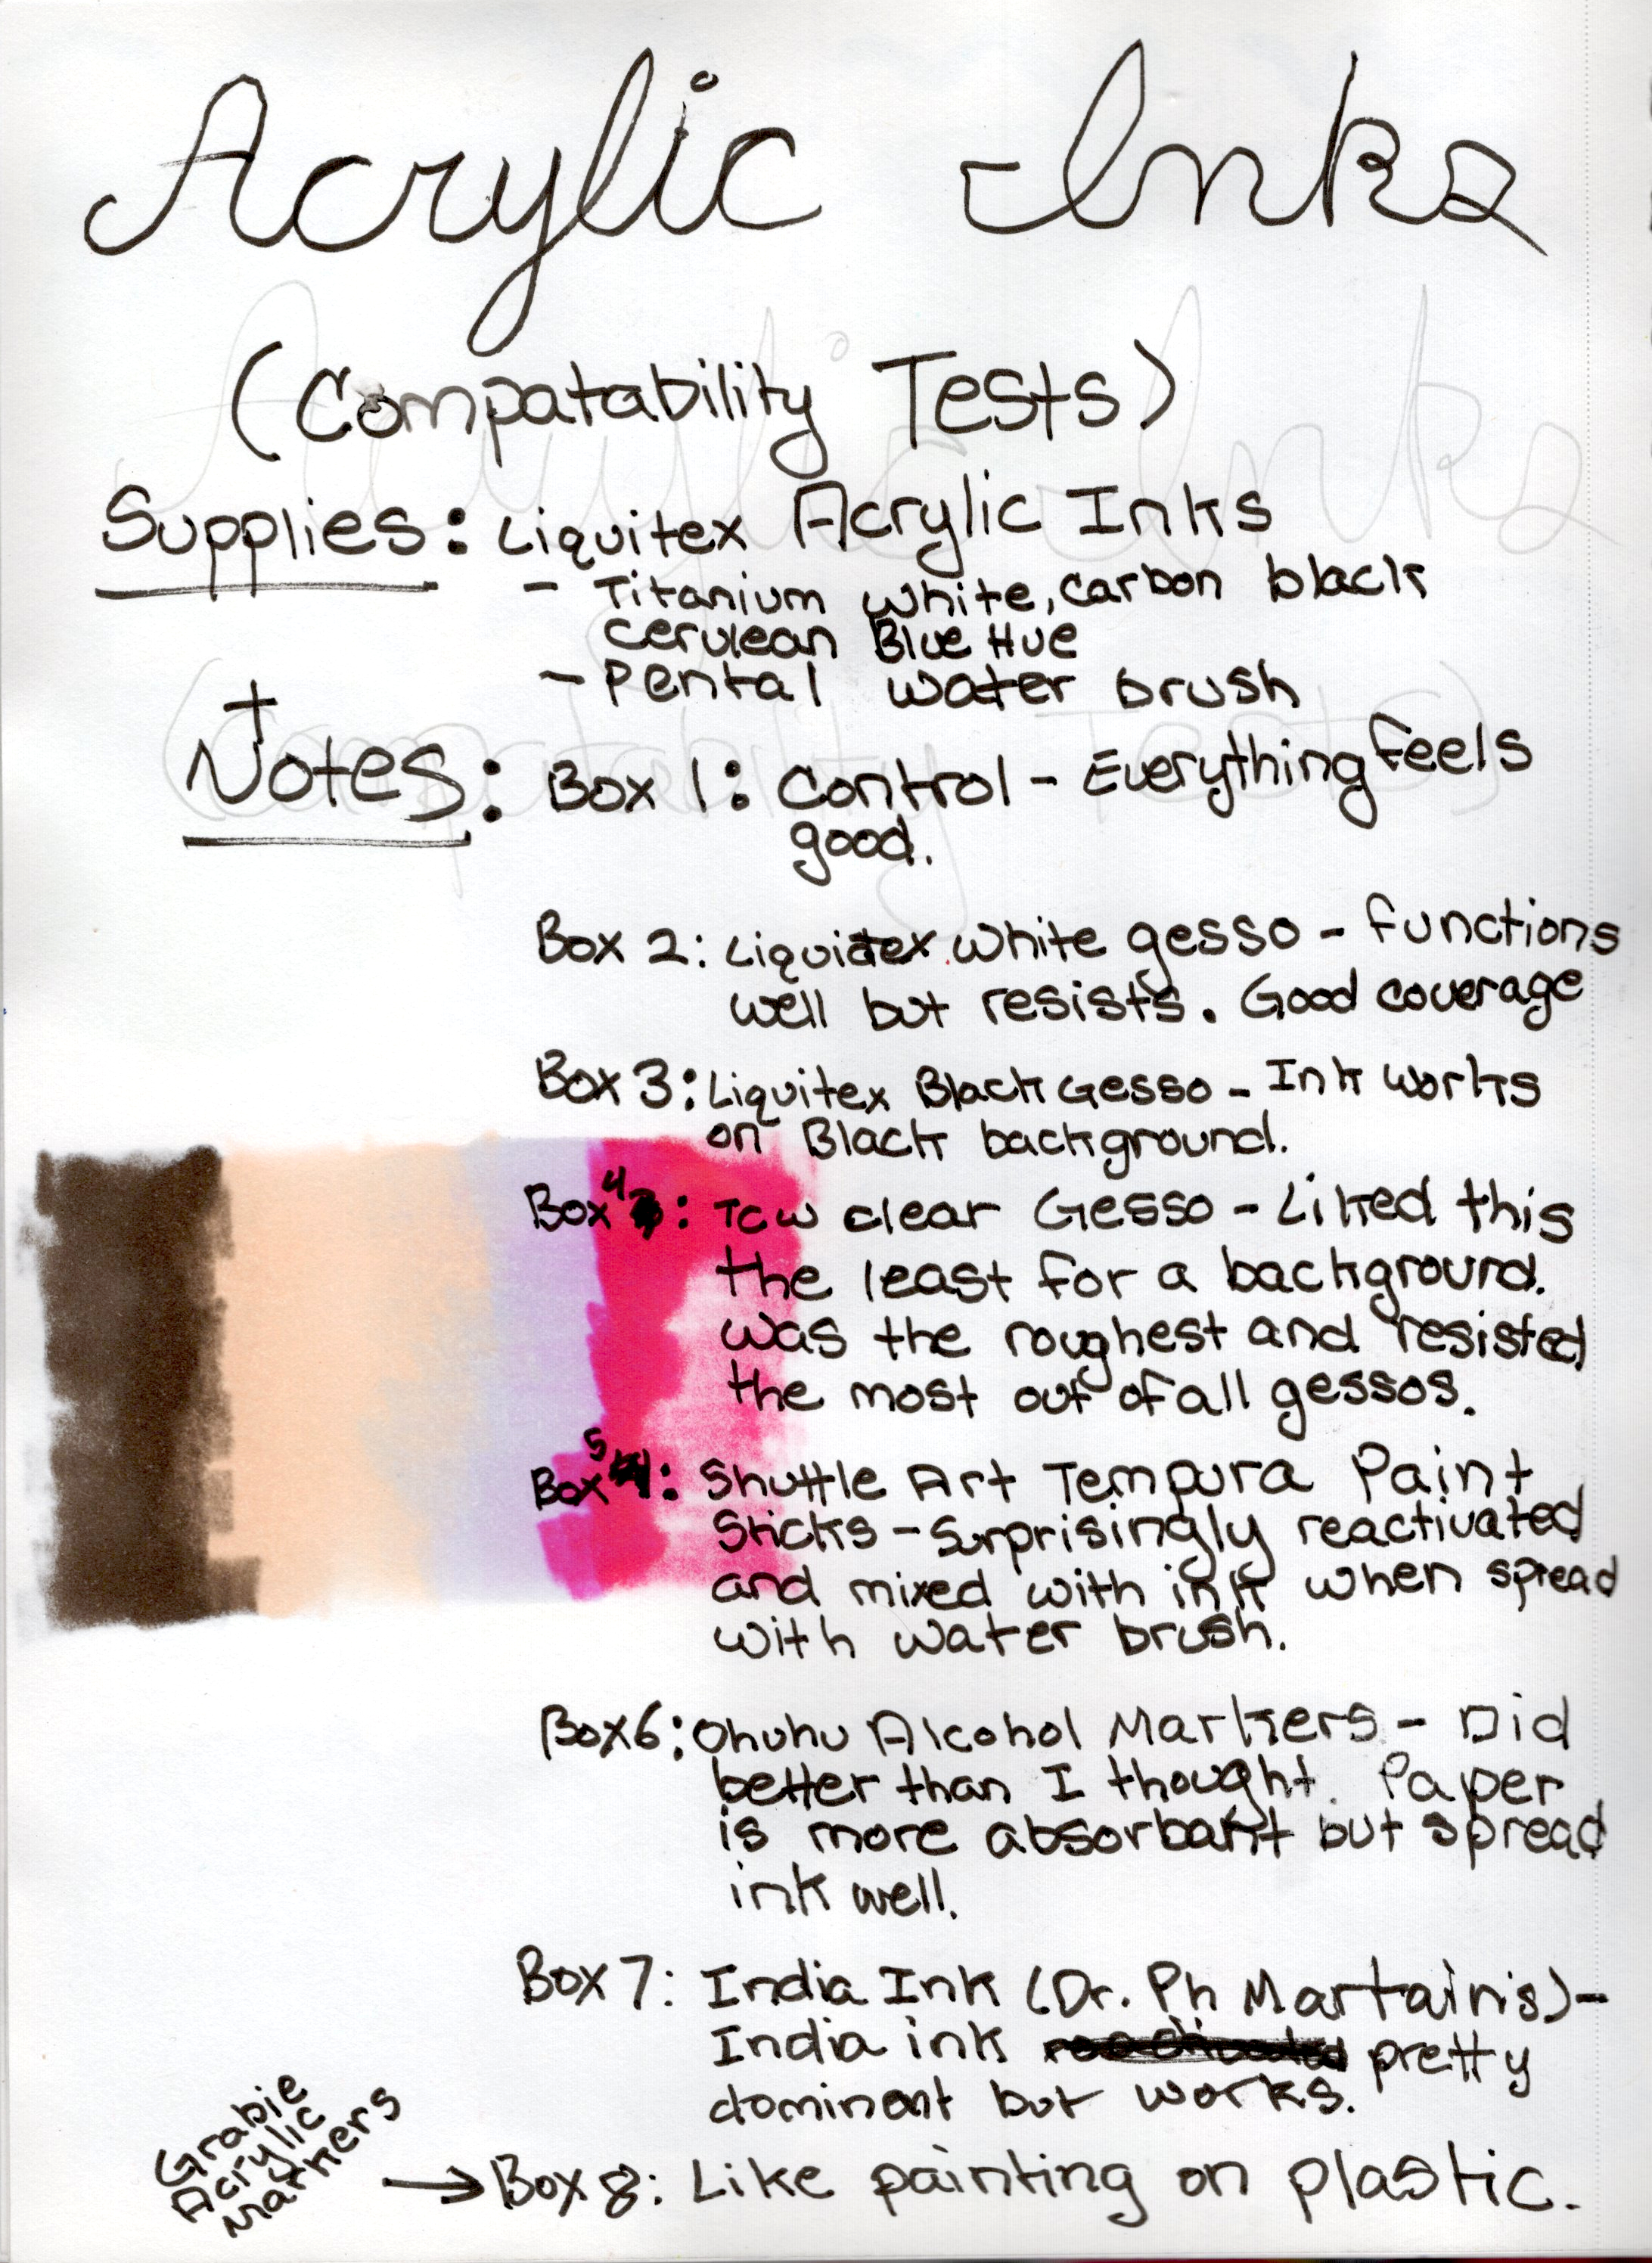 Acrylic Inks
(Compatability Tests)
Supplies: Liquitex Acrylic Inks
- Titanium white, carbon black
cerulean Blue Hue
- Pental water brush
+
Notes: Box 1: Control - Everything feels
good.
Box 2: Liquidtex white gesso - functions
well but resists. Good coverage
Box 3: Liquitex Black Gesso - Ink works
on Black background.
Box 4: TCW clear Gesso - Liked this
the least for a background.
was the roughest and resisted
the most out of all gessos.
Box 5: Shuttle Art Tempura Paint
Sticks - Surprisingly reactivated
and mixed with ink when spread
with water brush.
Box 6: Ohuhu Alcohol Markers - Did
better than I thought. Paper
is more absorbant but spread
ink well.
Box 7: India Ink (Dr. Ph Martain's) -
India ink pretty
dominant but works.
Grabie
Acrylic
Markers
→ Box 8: Like painting on plastic.